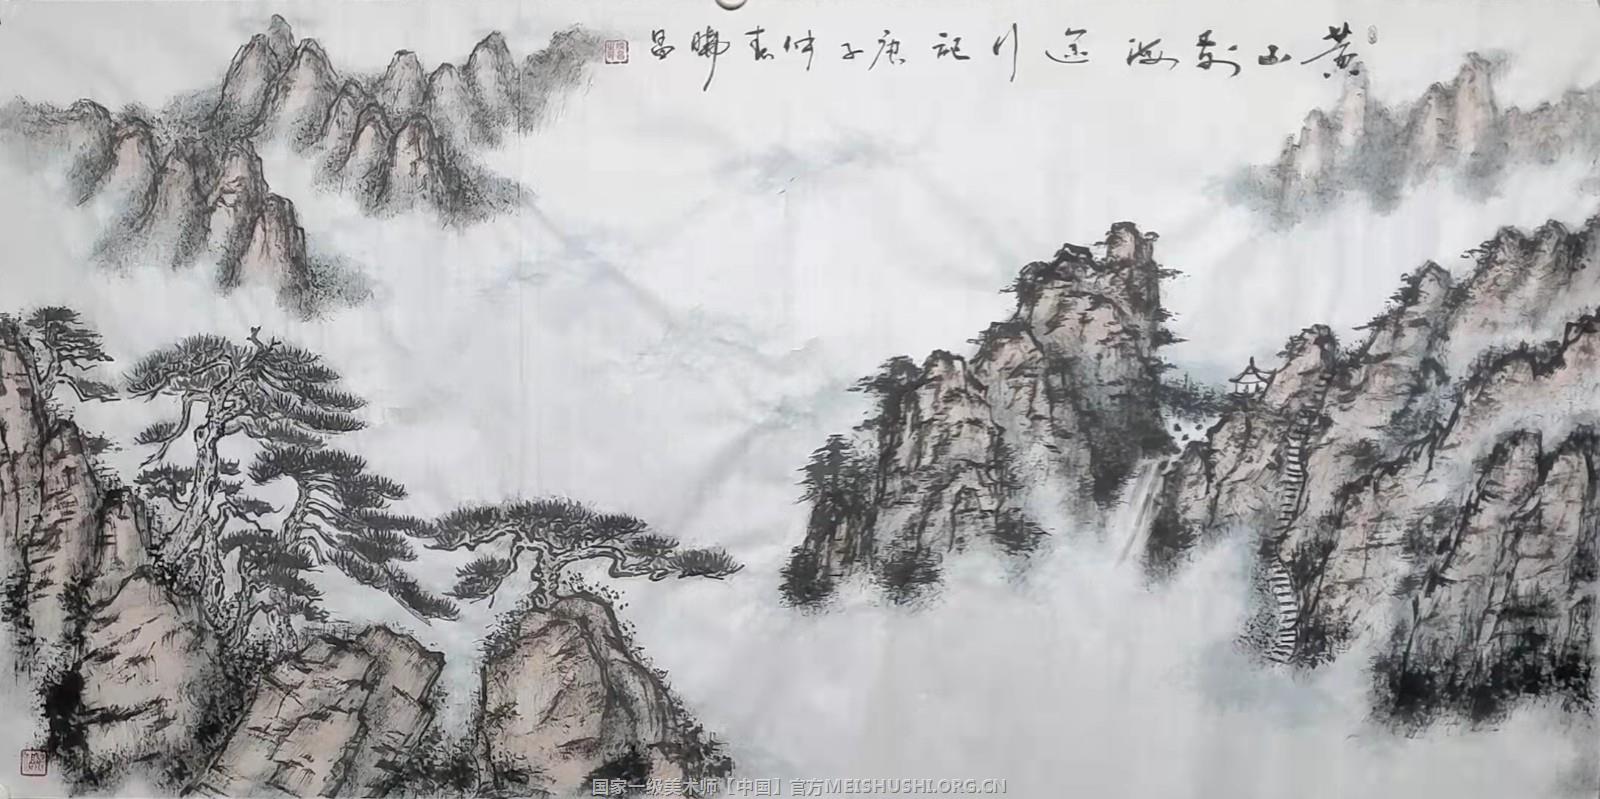 黄山前海行记庚子仲春晓昌
国家一级美术师【中国】官方MEISHUSHI.ORG.CN